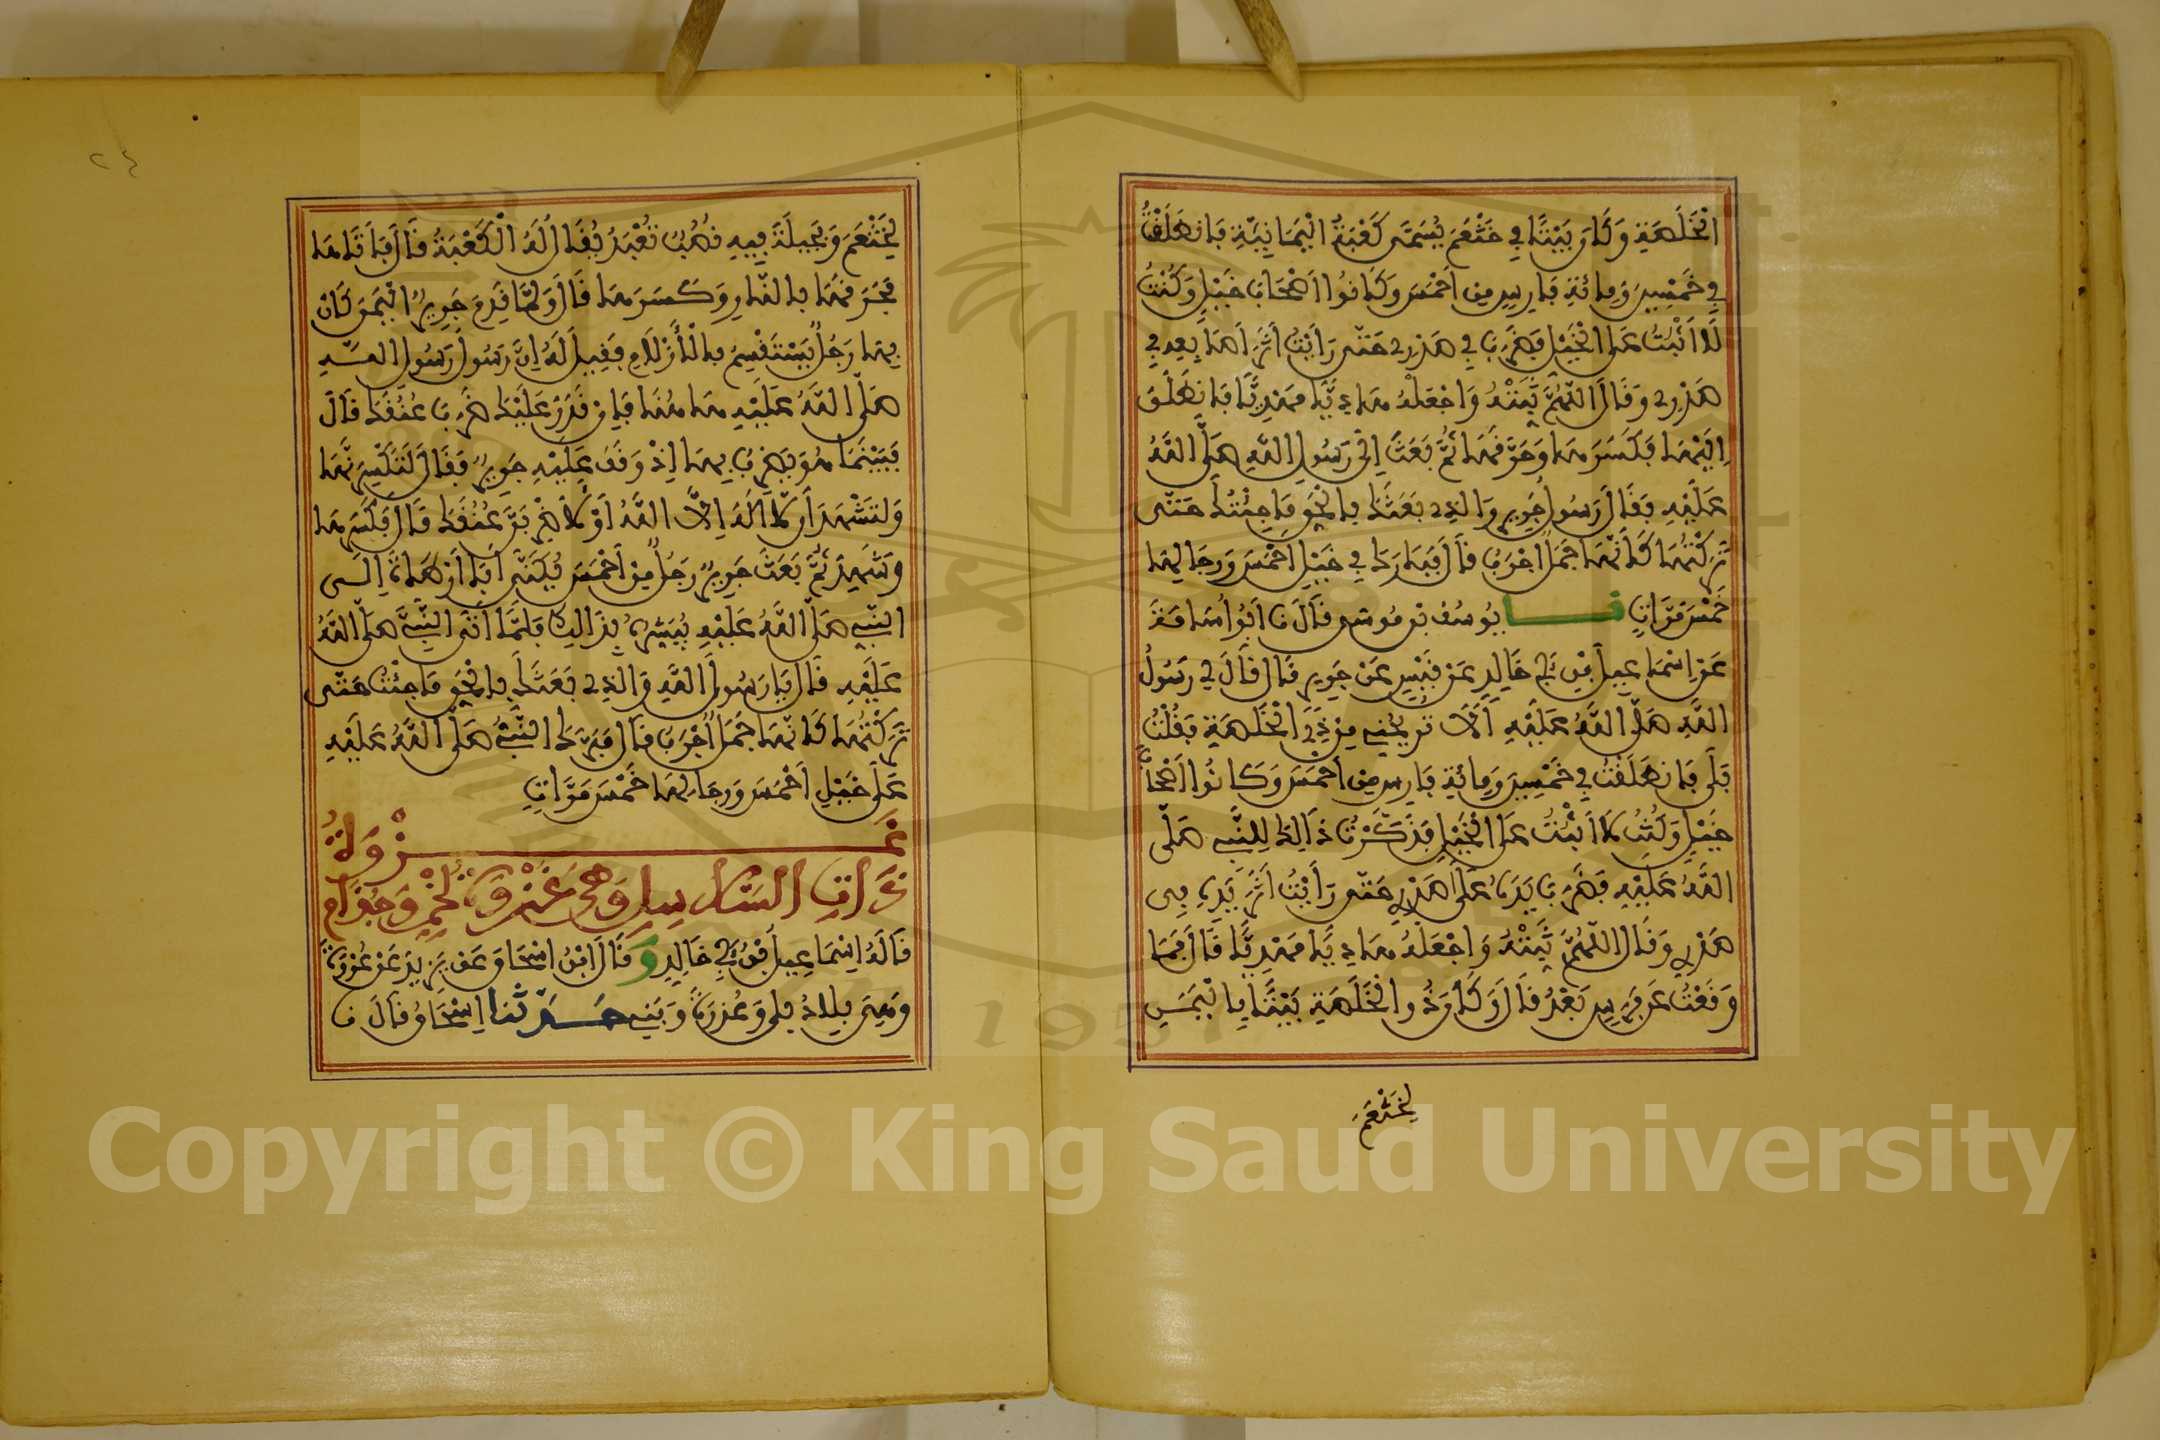 الْخَلَصَةِ وَكَانَ بَيْتًا فِي خَثْعَمَ يُسَمَّى كَعْبَةُ الْيَمَانِيَّةِ فَانْطَلَقْتُ
فِي خَمْسِينَ وَمِائَةِ فَارِسٍ مِنْ أَحْمَسَ وَكَانُوا أَصْحَابَ خَيْلٍ وَكُنْتُ
لَا أَثْبُتُ عَلَى الْخَيْلِ فَضَرَبَ فِي صَدْرِي حَتَّى رَأَيْتُ أَثَرَ أَصَابِعِهِ فِي
صَدْرِي وَقَالَ اللَّهُمَّ ثَبِّتْهُ وَاجْعَلْهُ هَادِيًا مَهْدِيًّا فَانْطَلَقَ
إِلَيْهَا فَكَسَرَهَا وَحَرَّقَهَا ثُمَّ بَعَثَ إِلَى رَسُولِ اللَّهِ صَلَّى اللَّهُ
عَلَيْهِ فَقَالَ رَسُولُ جَرِيرٍ وَالَّذِي بَعَثَكَ بِالْحَقِّ مَا جِئْتُكَ حَتَّى
تَرَكْتُهَا كَأَنَّهَا جَمَلٌ أَجْرَبُ قَالَ فَبَارَكَ فِي خَيْلِ أَحْمَسَ وَرِجَالِهَا
خَمْسَ مَرَّاتٍ نا يُوسُفُ بْنُ مُوسَى قَالَ نا أَبُو أُسَامَةَ
عَنْ إِسْمَاعِيلَ بْنِ أَبِي خَالِدٍ عَنْ قَيْسٍ عَنْ جَرِيرٍ قَالَ قَالَ لِي رَسُولُ
اللَّهِ صَلَّى اللَّهُ عَلَيْهِ أَلَا تُرِيحُنِي مِنْ ذِي الْخَلَصَةِ فَقُلْتُ
بَلَى فَانْطَلَقْتُ فِي خَمْسِينَ وَمِائَةِ فَارِسٍ مِنْ أَحْمَسَ وَكَانُوا أَصْحَابَ
خَيْلٍ وَكُنْتُ لَا أَثْبُتُ عَلَى الْخَيْلِ فَذَكَرْتُ ذَلِكَ لِلنَّبِيِّ صَلَّى
اللَّهُ عَلَيْهِ فَضَرَبَ يَدَهُ عَلَى صَدْرِي حَتَّى رَأَيْتُ أَثَرَ يَدِهِ فِي
صَدْرِي وَقَالَ اللَّهُمَّ ثَبِّتْهُ وَاجْعَلْهُ هَادِيًا مَهْدِيًّا قَالَ فَمَا
وَقَعْتُ عَنْ فَرَسٍ بَعْدُ قَالَ وَكَانَ ذُو الْخَلَصَةِ بَيْتًا بِالْيَمَنِ
لِخَثْعَمَ
٢٤
لِخَثْعَمَ وَبَجِيلَةَ فِيهِ نُصُبٌ تُعْبَدُ يُقَالُ لَهُ الْكَعْبَةُ قَالَ فَأَتَاهَا
فَحَرَّقَهَا بِالنَّارِ وَكَسَرَهَا قَالَ وَلَمَّا قَدِمَ جَرِيرٌ الْيَمَنَ كَانَ
بِهَا رَجُلٌ يَسْتَقْسِمُ بِالْأَزْلَامِ فَقِيلَ لَهُ إِنَّ رَسُولَ رَسُولِ اللَّهِ
صَلَّى اللَّهُ عَلَيْهِ هَاهُنَا فَإِنْ قَدَرَ عَلَيْكَ ضَرَبَ عُنُقَكَ قَالَ
فَبَيْنَمَا هُوَ يَضْرِبُ بِهَا إِذْ وَقَفَ عَلَيْهِ جَرِيرٌ فَقَالَ لَتَكْسِرَنَّهَا
وَلَتَشْهَدَ أَنْ لَا إِلَهَ إِلَّا اللَّهُ أَوْ لَأَضْرِبَنَّ عُنُقَكَ قَالَ فَكَسَرَهَا
وَشَهِدَ ثُمَّ بَعَثَ جَرِيرٌ رَجُلًا مِنْ أَحْمَسَ يُكَنَّى أَبَا أَرْطَاةَ إِلَى
النَّبِيِّ صَلَّى اللَّهُ عَلَيْهِ يُبَشِّرُهُ بِذَلِكَ فَلَمَّا أَتَى النَّبِيَّ صَلَّى اللَّهُ
عَلَيْهِ قَالَ يَا رَسُولَ اللَّهِ وَالَّذِي بَعَثَكَ بِالْحَقِّ مَا جِئْتُ حَتَّى
تَرَكْتُهَا كَأَنَّهَا جَمَلٌ أَجْرَبُ قَالَ فَبَرَّكَ النَّبِيُّ صَلَّى اللَّهُ عَلَيْهِ
عَلَى خَيْلِ أَحْمَسَ وَرِجَالِهَا خَمْسَ مَرَّاتٍ
غَزْوَةُ
ذَاتِ السَّلَاسِلِ وَهِيَ غَزْوَةُ لَخْمٍ وَجُذَامَ
قَالَهُ إِسْمَاعِيلُ بْنُ أَبِي خَالِدٍ وَقَالَ ابْنُ إِسْحَاقَ عَنْ يَزِيدَ عَنْ عُرْوَةَ
وَهِيَ بِلَادُ بَلِي وَعُذْرَةَ وَبَنِي حَدَّثَنَا إِسْحَاقُ قَالَ نا
Copyright © King Saud University
1957